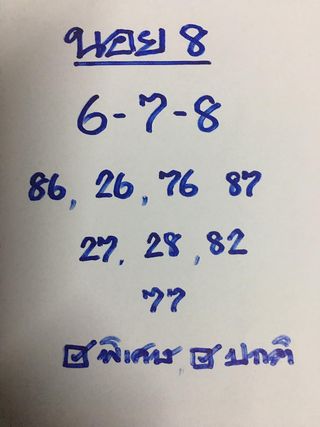 นอย 8
6-7-8
86, 26, 76 87
27, 28, 82
77
☑ พิเศษ ☑ ปกติ